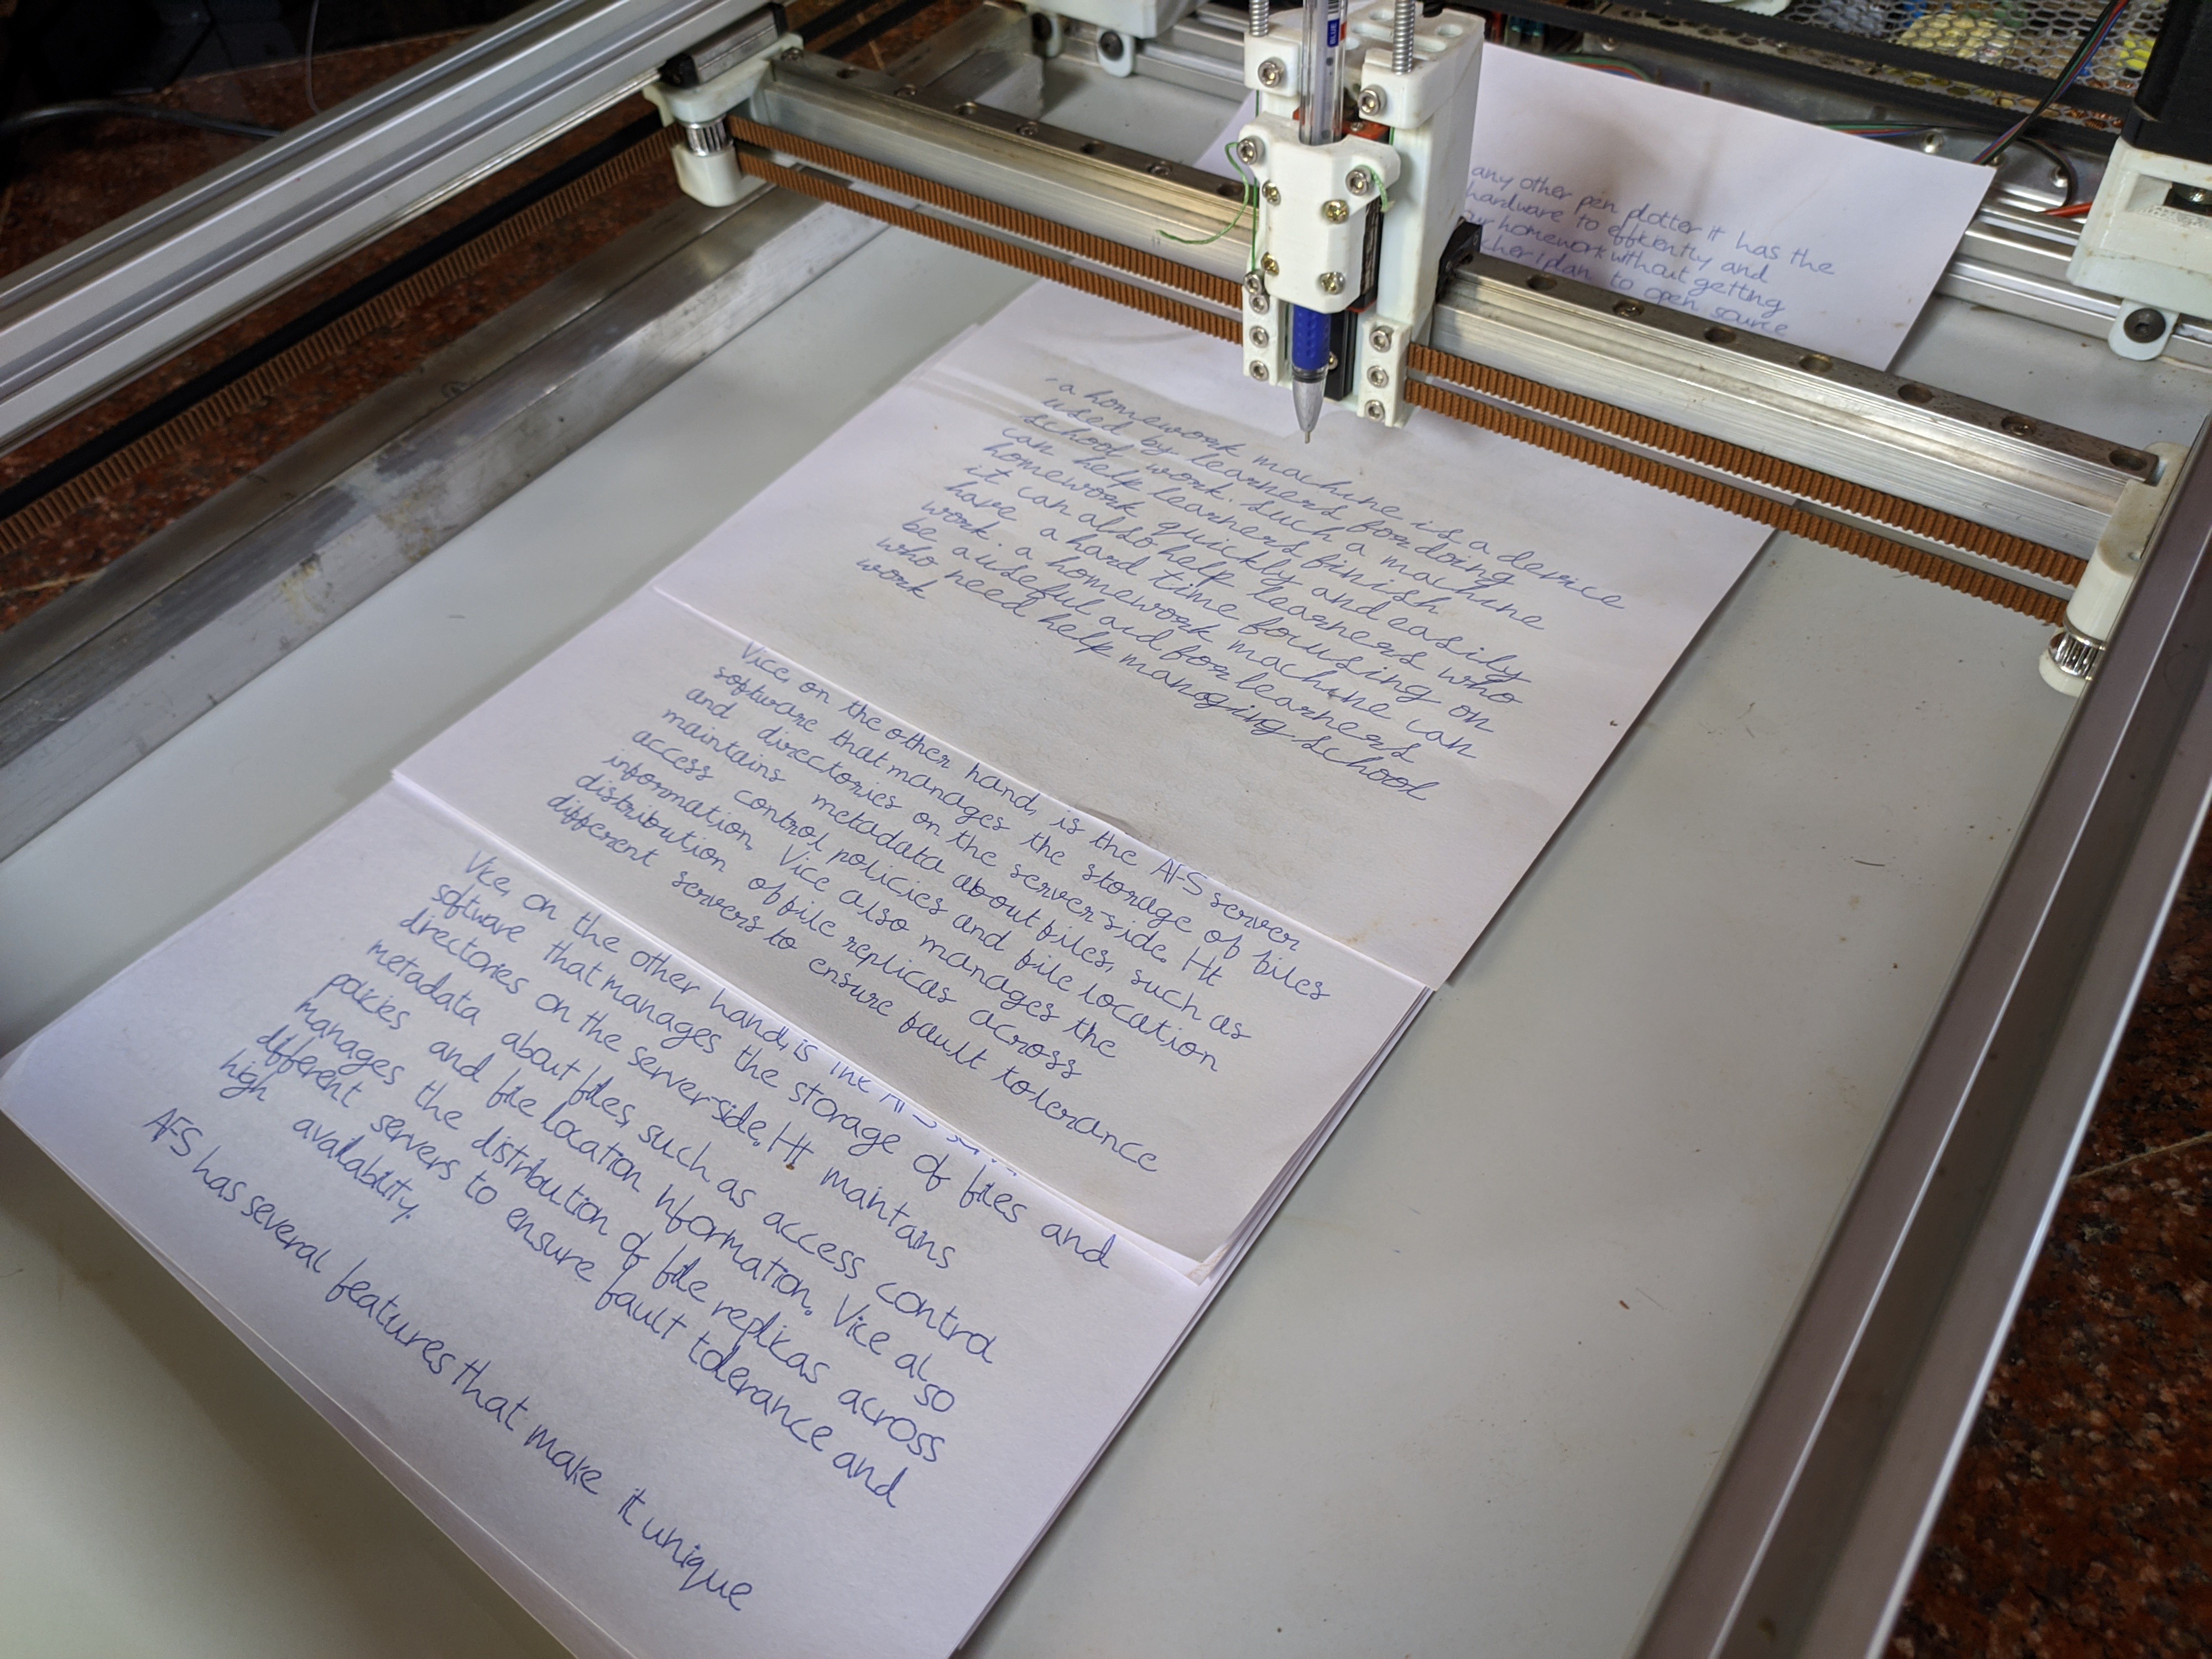 BLUE
any other pen plotter it has the
hardware to efficiently and
homework without getting
i plan to open source
a homework machine is a device
used by learners for doing
school work. such a machine
can help learners finish
homework quickly and easily
it can also help learners who
have a hard time focusing on
work. a homework machine can
be a useful aid for learners
who need help managing school
work
Vice, on the other hand, is the AFS server
software that manages the storage of files
and directories on the server-side. Ht
maintains metadata about files, such as
access control policies and file location
information. Vice also manages the
distribution of file replicas across
different servers to ensure fault tolerance
Vice, on the other hand, is
software that manages the storage of files and
directories on the server-side. Ht maintains
metadata about files, such as access control
policies and file location nformation. Vice also
manages the distribution of file replicas across
different servers to ensure fault tolerance and
high availability.
AFS has several features that make it unique